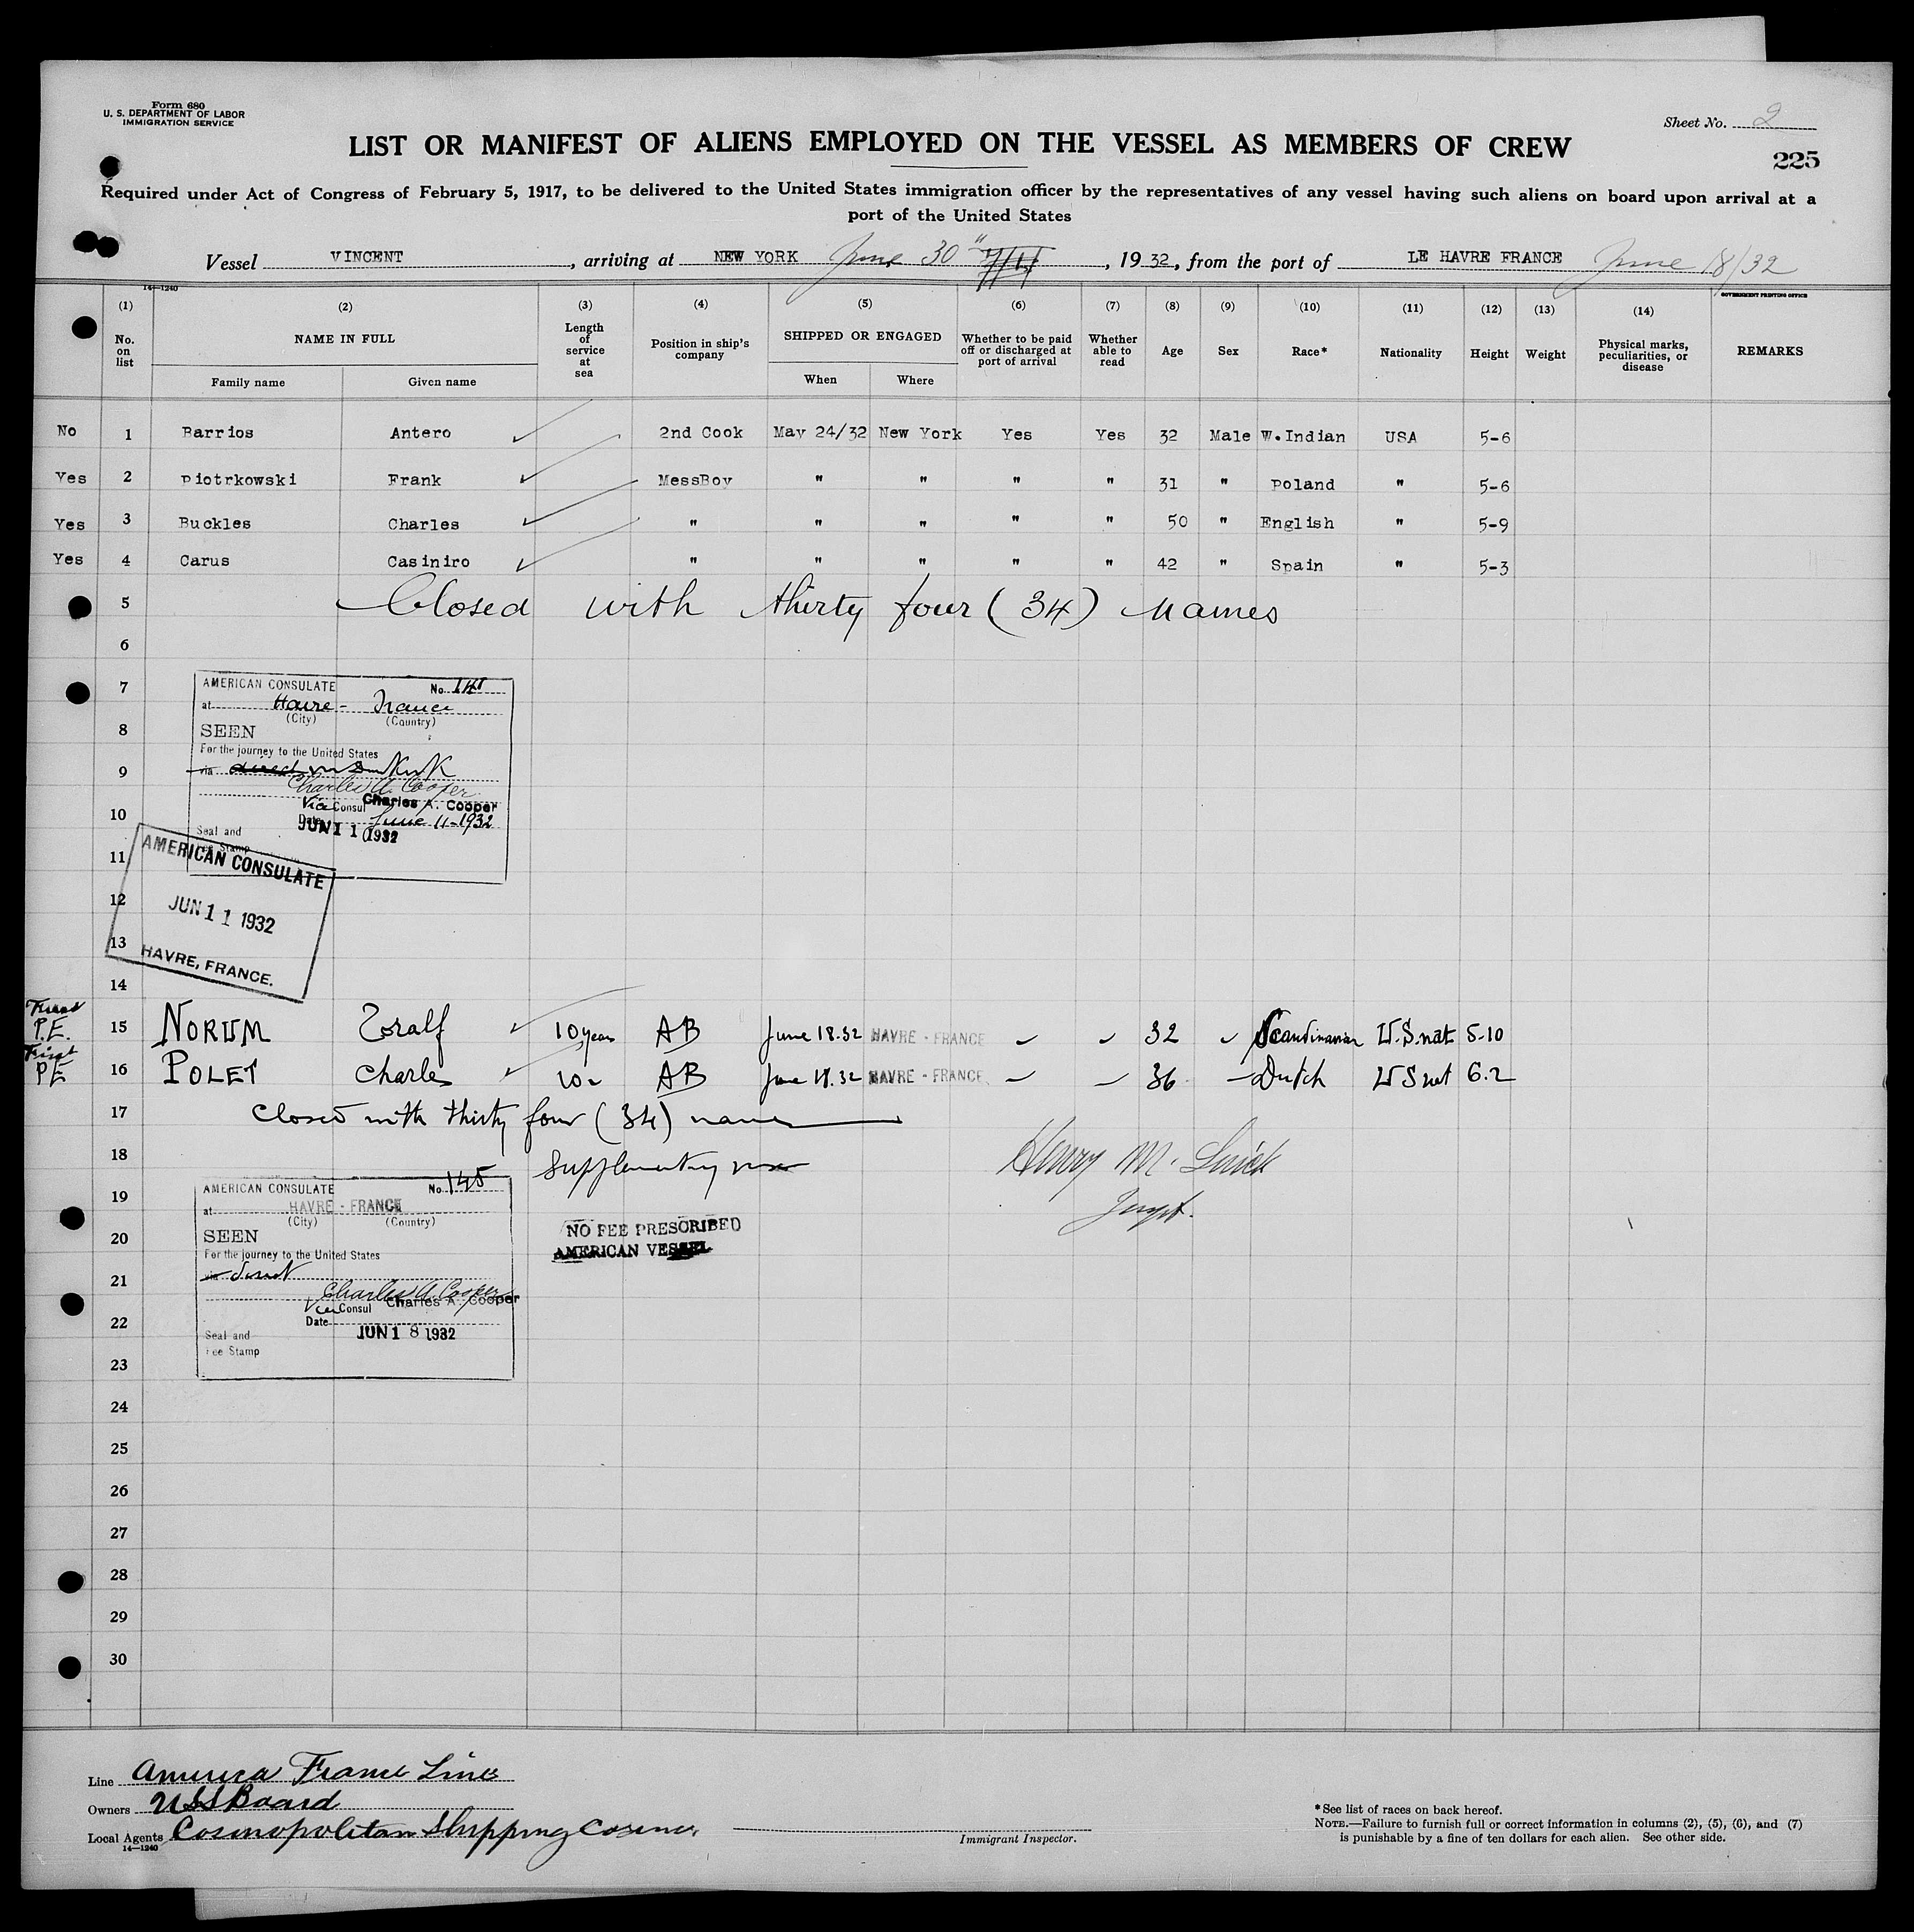 Form 680
U. S. DEPARTMENT OF LABOR
IMMIGRATION SERVICE
Sheet No. 2
LIST OR MANIFEST OF ALIENS EMPLOYED ON THE VESSEL AS MEMBERS OF CREW
225
Required under Act of Congress of February 5, 1917, to be delivered to the United States immigration officer by the representatives of any vessel having such aliens on board upon arrival at a
port of the United States
Vessel VINCENT, arriving at NEW YORK June 30", 1932, from the port of LE HAVRE FRANCE June 18/32
14—1240
GOVERNMENT PRINTING OFFICE
(1) (2) (3) (4) (5) (6) (7) (8) (9) (10) (11) (12) (13) (14)
No. on list NAME IN FULL Length of service at sea Position in ship's company SHIPPED OR ENGAGED Whether to be paid off or discharged at port of arrival Whether able to read Age Sex Race* Nationality Height Weight Physical marks, peculiarities, or disease REMARKS
Family name Given name When Where
No 1 Barrios Antero 2nd Cook May 24/32 New York Yes Yes 32 Male W.Indian USA 5-6
Yes 2 Piotrkowski Frank MessBoy " " " " 31 " Poland " 5-6
Yes 3 Buckles Charles " " " " " 50 " English " 5-9
Yes 4 Carus Casiniro " " " " " 42 " Spain " 5-3
5 Closed with thirty four (34) names
6
7
AMERICAN CONSULATE No. 141
at Havre - France
(City) (Country)
8
SEEN
For the journey to the United States
9
via direct via Dunkirk
Charles A. Cooper
10
Vice Consul Charles A. Cooper
Date June 11-1932
JUN 11 1932
Seal and
Fee Stamp
11
AMERICAN CONSULATE
12
JUN 11 1932
13
HAVRE, FRANCE.
14
P.E. 15 NORUM Toralf 10 years AB June 18.32 HAVRE - FRANCE 32 Scandinavian U.S.nat 5-10
First PE 16 POLET Charles 10 " AB June 18.32 HAVRE - FRANCE. 36 Dutch U S nat 6.2
17 Closed with thirty four (34) names
18 Supplementary visa
Henry M.
19
AMERICAN CONSULATE No. 145
at HAVRE - FRANCE
(City) (Country)
20
SEEN
NO FEE PRESCRIBED
AMERICAN VESSEL
For the journey to the United States
21
via direct
Charles A. Cooper
Vice Consul Charles A. Cooper
22
Date
JUN 18 1932
Seal and
Fee Stamp
23
24
25
26
27
28
29
30
Line America France Line
Owners U S S Board
Local Agents Cosmopolitan Shipping
14—1240
Immigrant Inspector.
*See list of races on back hereof.
NOTE.—Failure to furnish full or correct information in columns (2), (5), (6), and (7)
is punishable by a fine of ten dollars for each alien. See other side.